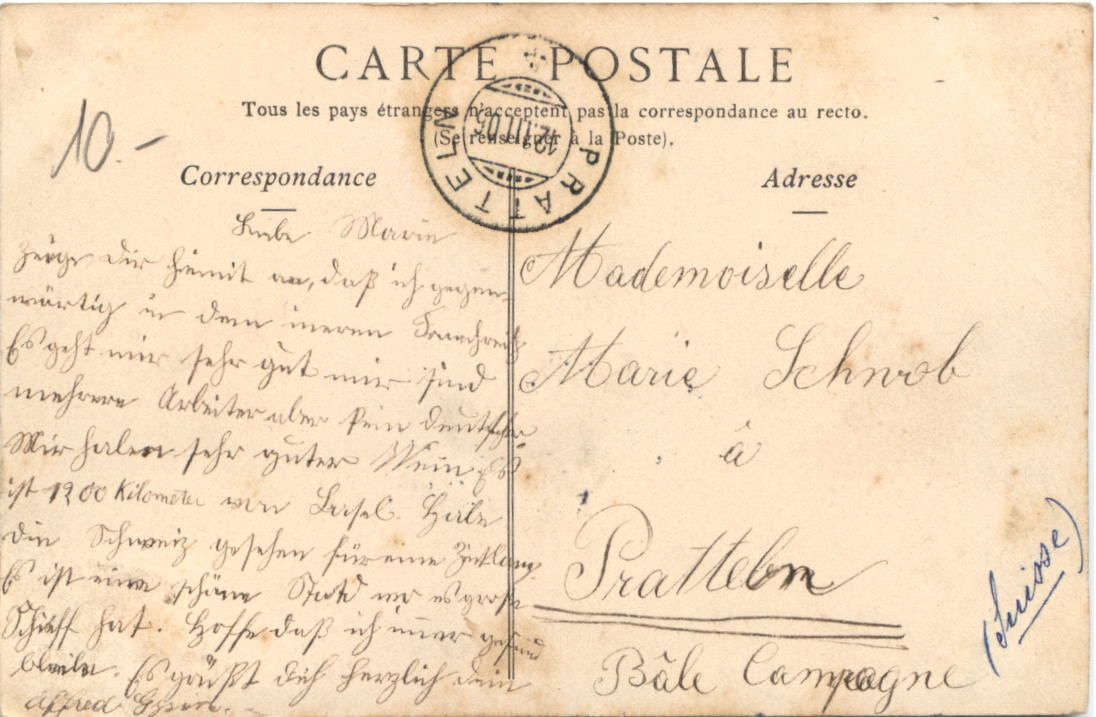 CARTE POSTALE
Tous les pays étrangers n'acceptent pas la correspondance au recto.
(Se renseigner à la Poste).
PRATTELN
12.II.05
10.-
Correspondance
Liebe Marie
Zeige Dir hiemit an, daß ich gegen-
wärtig in dem ineren Frankreich
Es geht mir sehr gut mir sind
mehrere Arbeiter aber kein deutscher
Mir haben sehr guter Wein Es
ist 1200 Kilometer von Basel. Habe
die Schweiz gesehen für eine Zeitlang
Es ist eine schöne Stadt wo es große
Schieff hat. Hoffe daß ich immer gesund
bleibe. Es grüßt dich herzlich dein
Alfred
Adresse
Mademoiselle
Marie Schwob
à
Pratteln
Bâle Campagne
(Suisse)